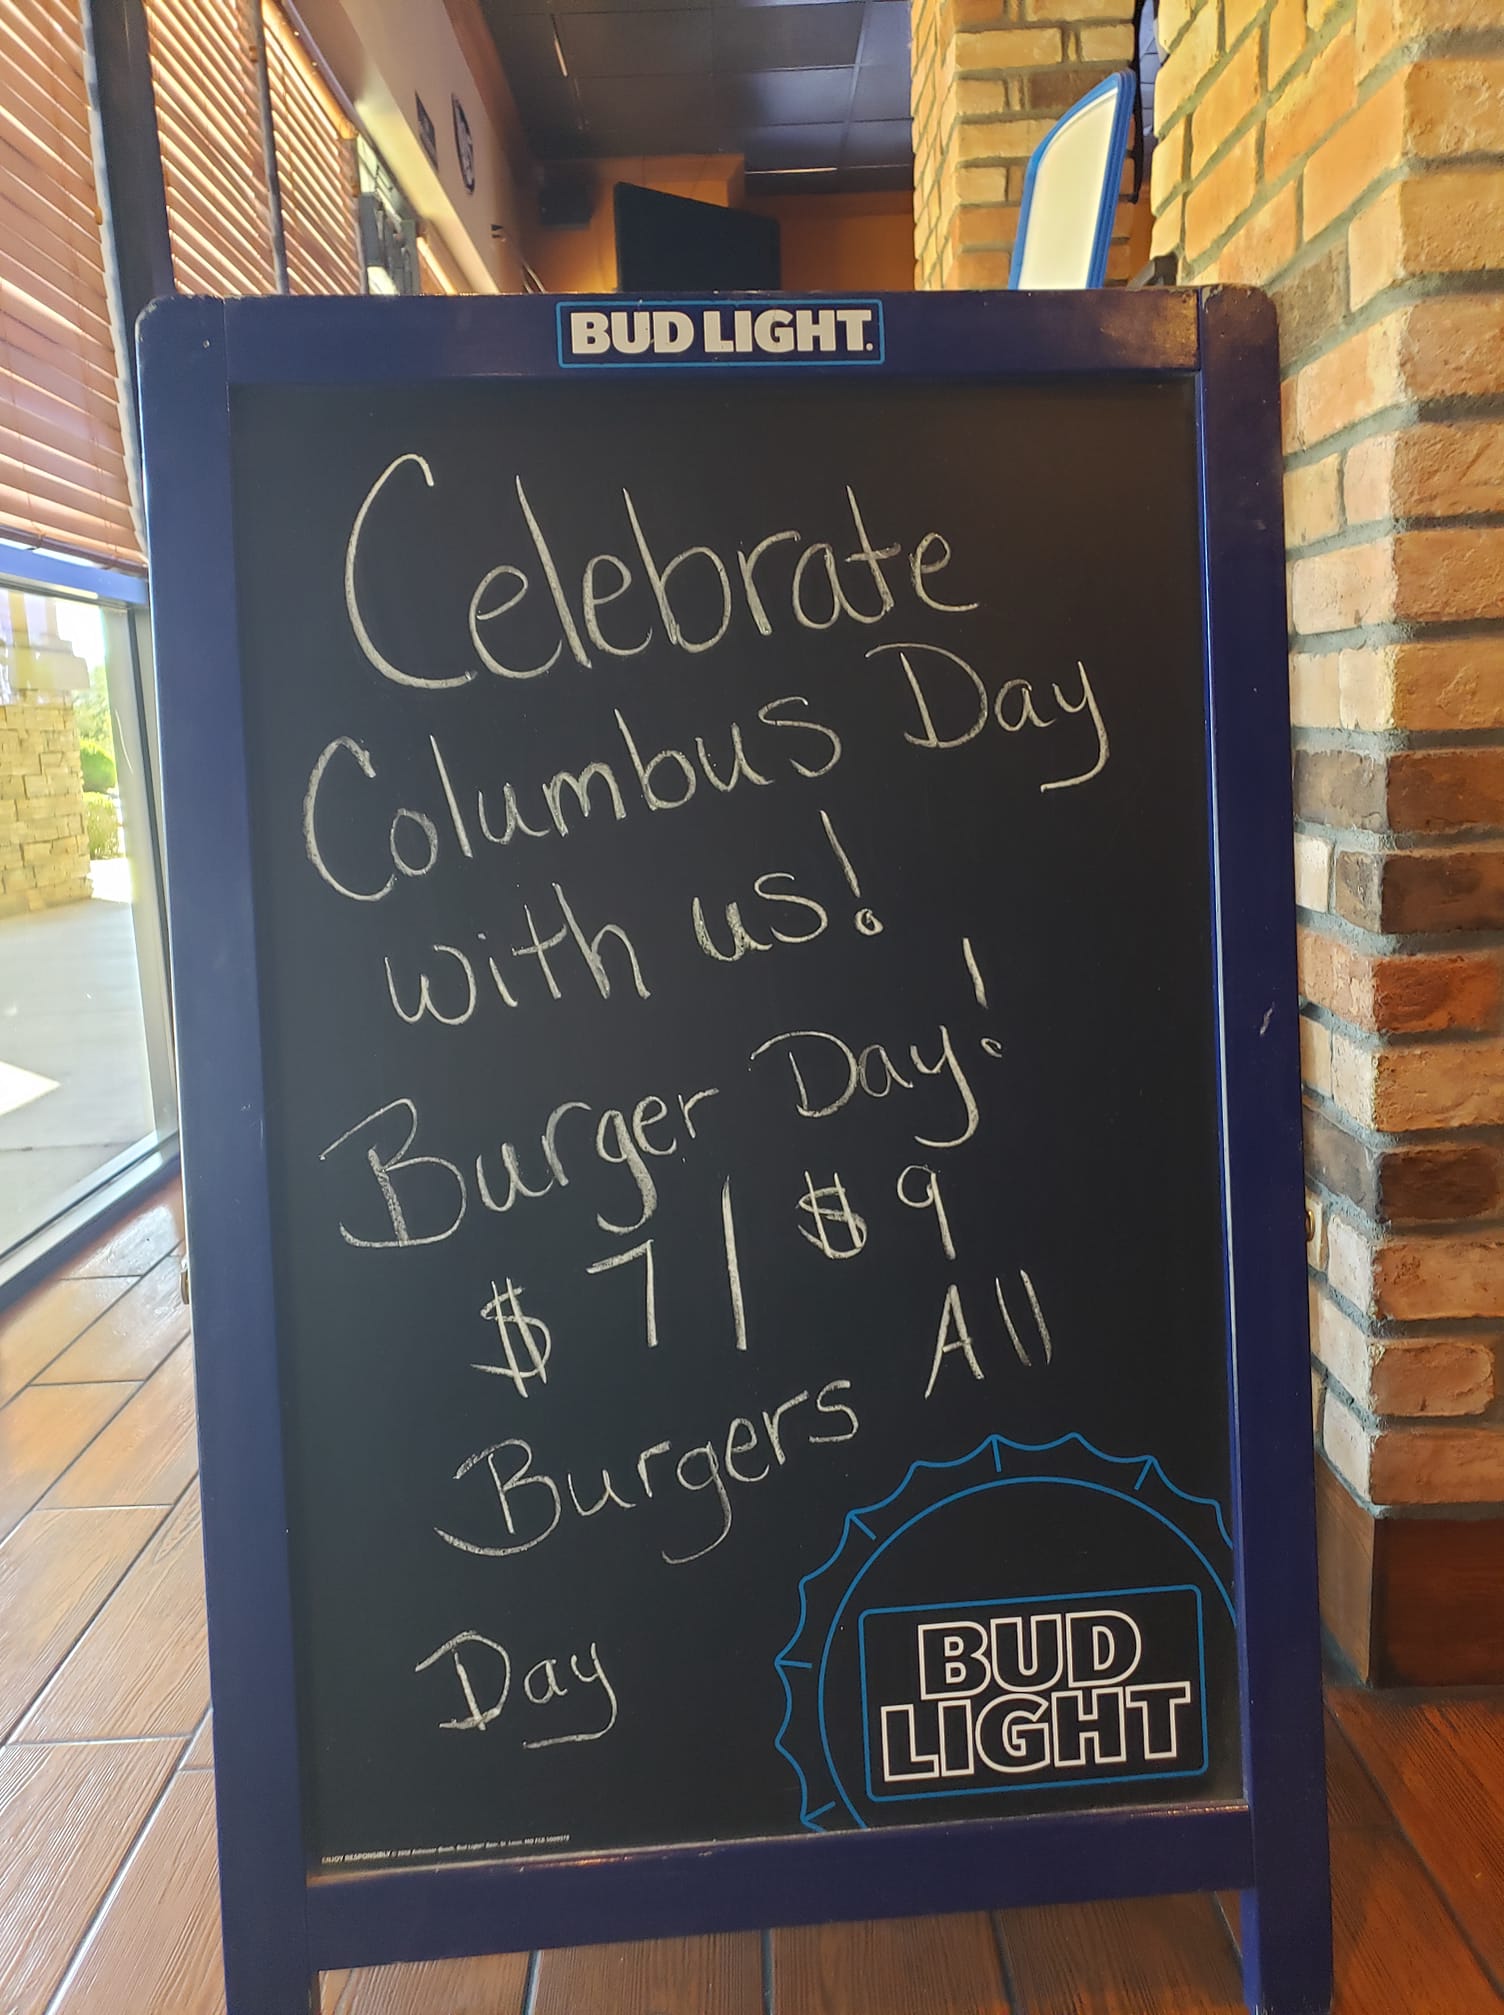 BUD LIGHT.
Celebrate
Columbus Day
with us!
Burger Day!
$ 7 | $ 9
Burgers All
Day
BUD
LIGHT
ENJOY RESPONSIBLY